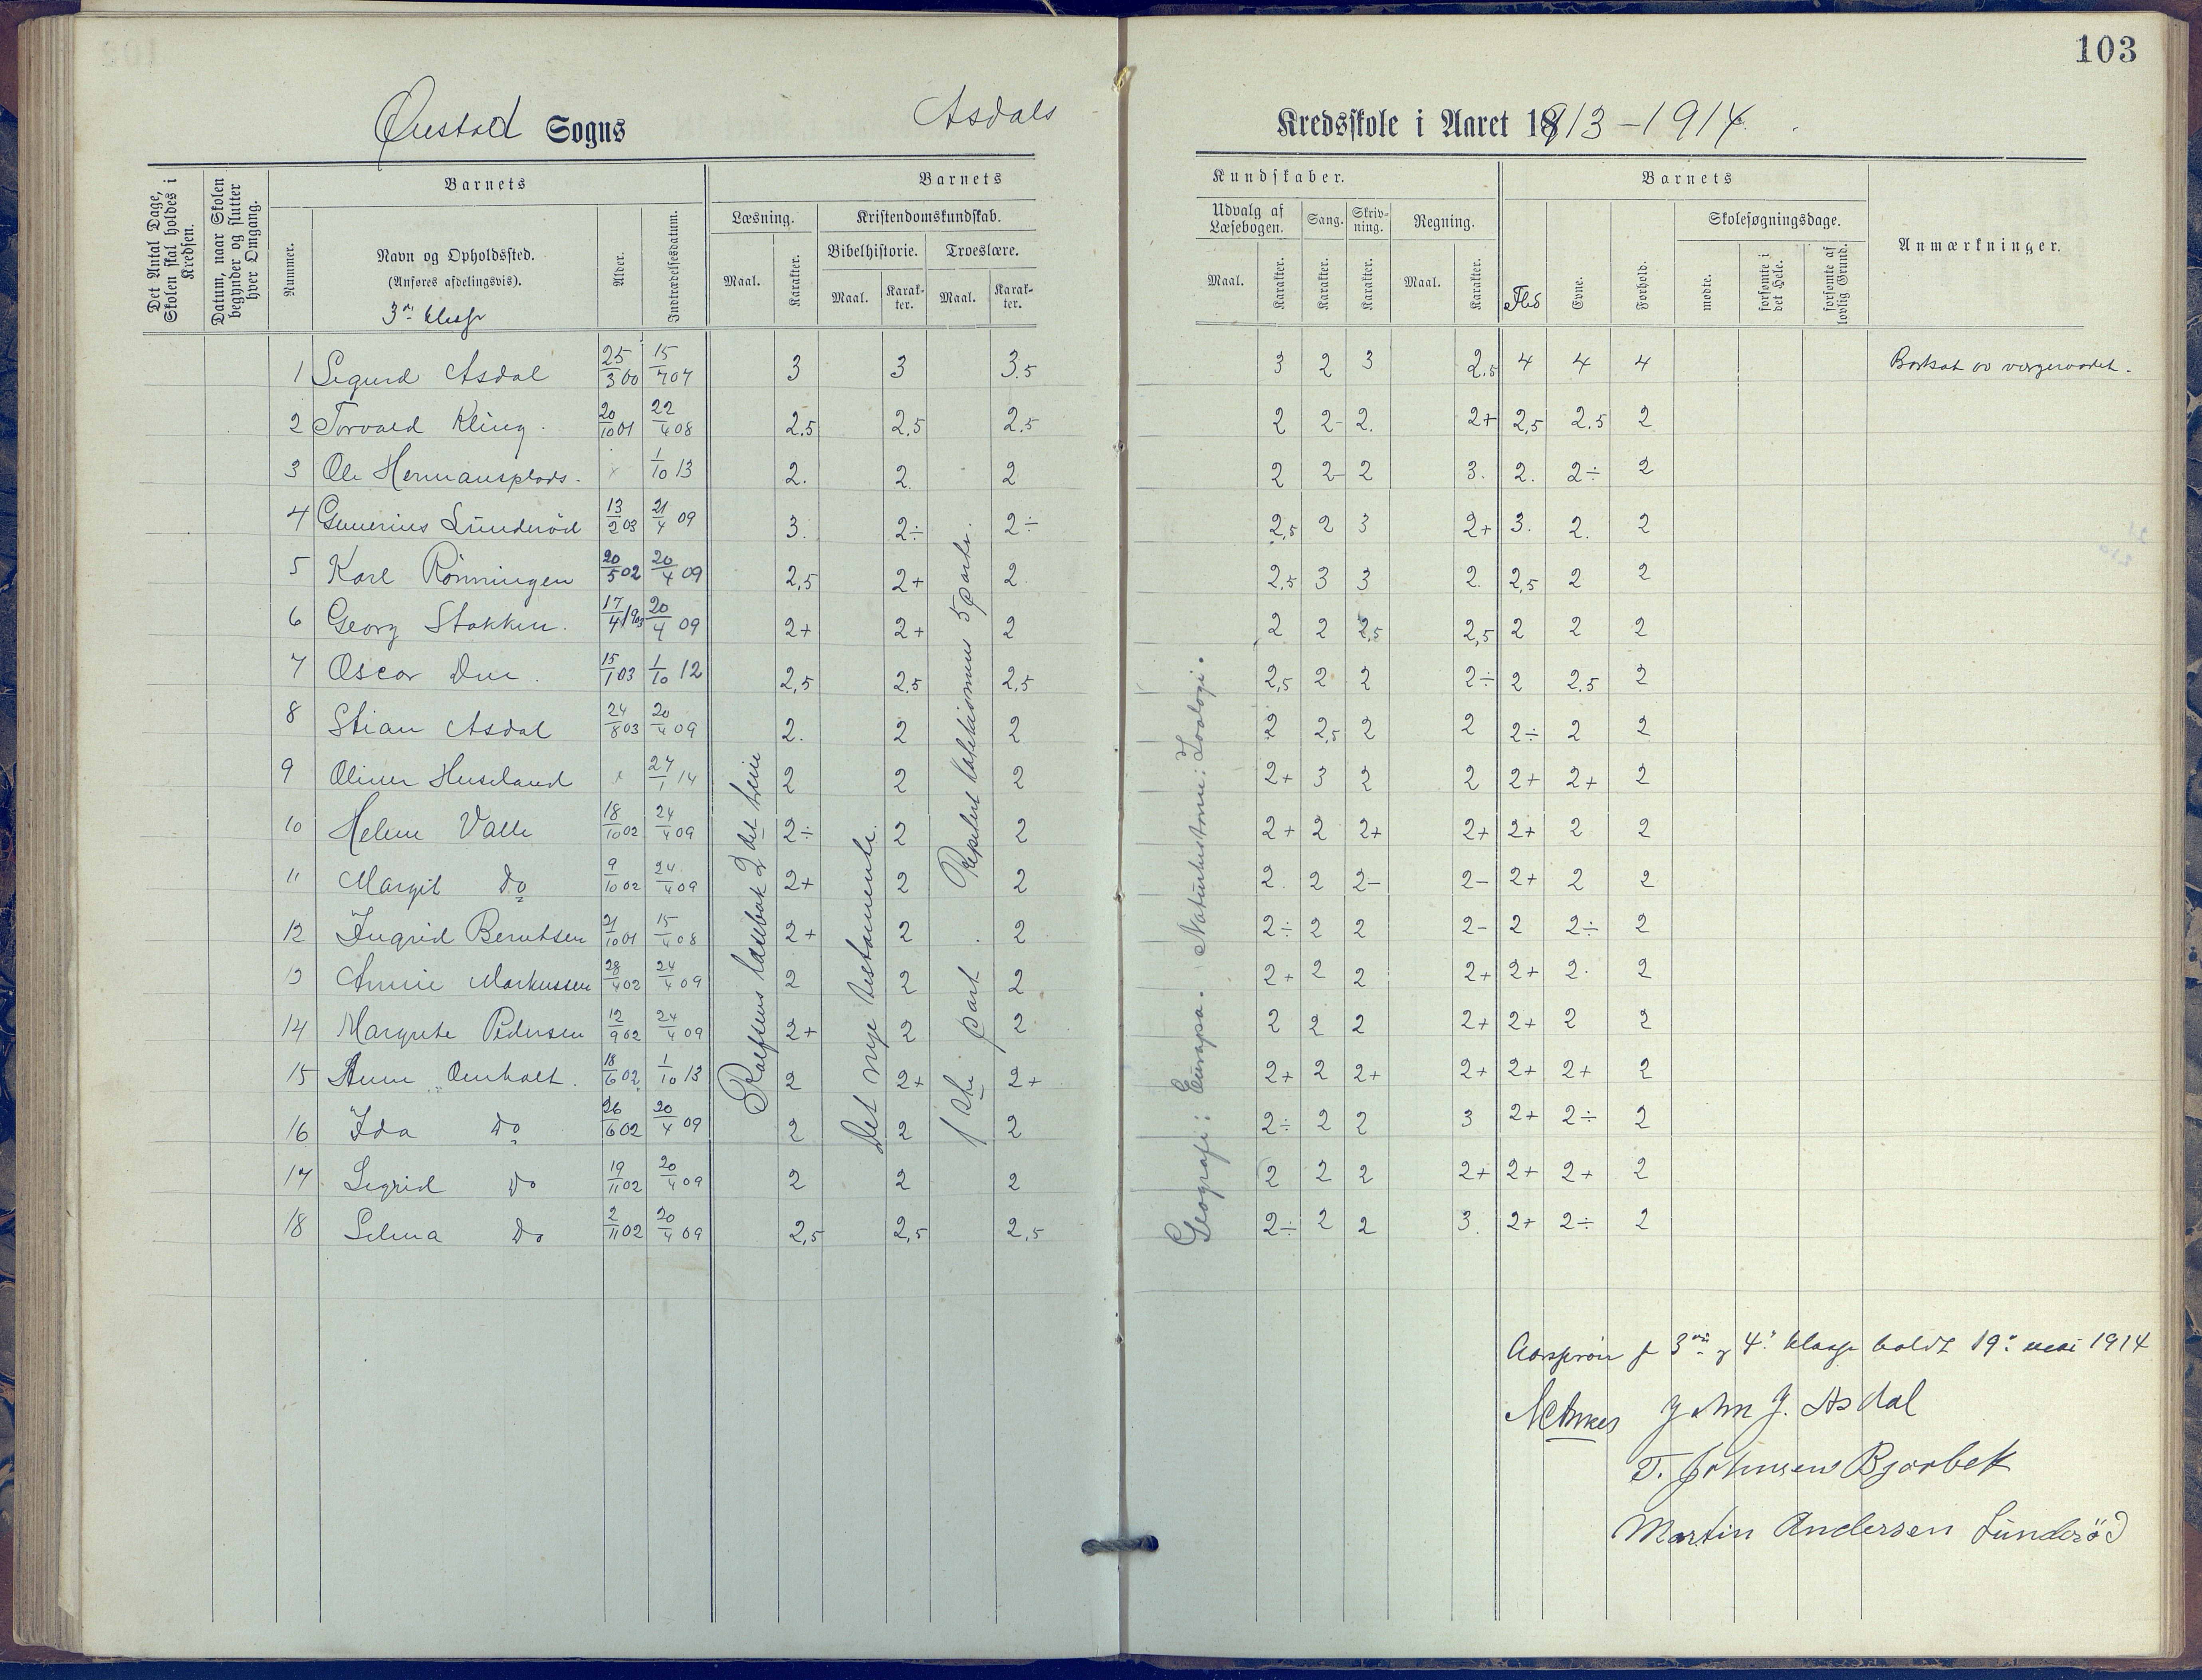 103
Øiestad Sogns Asdals Kredsskole i Aaret 1913-1914.
Det Antal Dage, Skolen skal holdes i Kredsen.
Datum, naar Skolen begynder og slutter hver Omgang.
Barnets
Nummer.
Navn og Opholdssted.
(Anføres afdelingsvis).
3die klasse
Alder.
Indtrædelsesdatum.
Barnets Kundskaber.
Læsning. Kristendomskundskab. Udvalg af Læsebogen. Sang. Skrivning. Regning.
Bibelhistorie. Troeslære.
Maal. Karakter. Maal. Karakter. Maal. Karakter. Maal. Karakter. Karakter. Karakter. Maal. Karakter.
Barnets
Flid Evne. Forhold.
Skolesøgningsdage.
mødte. forsømte i det Hele. forsømte af lovlig Grund.
Anmærkninger.
1 Sigurd Asdal 25/3 00 15/4 07 3 3 3.5 3 2 3 2,5 4 4 4 Bortsat av vergeraadet.
2 Torvald Kling. 20/10 01 22/4 08 2,5 2,5 2,5 2 2- 2. 2+ 2,5 2.5 2
3 Ole Hermansplads. x 1/10 13 2. 2. 2 2 2- 2 3. 2. 2÷ 2
4 Gunerius Lunderöd 13/2 03 21/4 09 3. 2÷ 2÷ 2,5 2 3 2+ 3. 2. 2
5 Karl Rönningen 20/5 02 20/4 09 2,5 2+ 2. 2,5 3 3 2. 2,5 2 2
6 Georg Stokken. 17/4 1903 20/4 09 2+ 2+ 2 2 2 2,5 2,5 2 2 2
7 Oscar Due. 15/1 03 1/10 12 2,5 2,5 2,5 2,5 2 2 2÷ 2 2,5 2
8 Stian Asdal 24/8 03 20/4 09 2. 2 2 2 2,5 2 2 2÷ 2 2
9 Oliver Huseland x 27/1 14 2 2 2 2+ 3 2 2 2+ 2+ 2
10 Helene Valle 18/10 02 24/4 09 2÷ 2 2 2+ 2 2+ 2+ 2+ 2 2
11 Margit Do 9/10 02 24/4 09 2+ 2 2 2. 2 2- 2- 2+ 2 2
12 Ingrid Berntsen 21/10 01 15/4 08 2+ 2 2 2÷ 2 2 2- 2 2÷ 2
13 Annie Markussen 28/4 02 24/4 09 2 2 2 2+ 2 2 2+ 2+ 2. 2
14 Margrete Pedersen 12/9 02 24/4 09 2+ 2 2 2 2 2 2+ 2+ 2 2
15 Anne Omholt. 18/6 02 1/10 13 2 2+ 2+ 2+ 2 2+ 2+ 2+ 2+ 2
16 Ida Do 26/6 02 20/4 09 2 2 2 2÷ 2 2 3 2+ 2÷ 2
17 Sigrid Do 19/11 02 20/4 09 2 2 2 2 2 2 2+ 2+ 2+ 2
18 Selma Do 2/11 02 20/4 09 2,5 2,5 2,5 2÷ 2 2 3. 2+ 2÷ 2
Rolfsens læsebok 2det trin
Det nye testamente.
1ste part
Repetert katekismus 5 parti.
Geografi: Europa. Naturhistorie: Zoologi.
3die og 4de klasse holdt 19de mai 1914
John J. Asdal
T. Johnsen Bjorbek
Martin Andersen Lunderöd